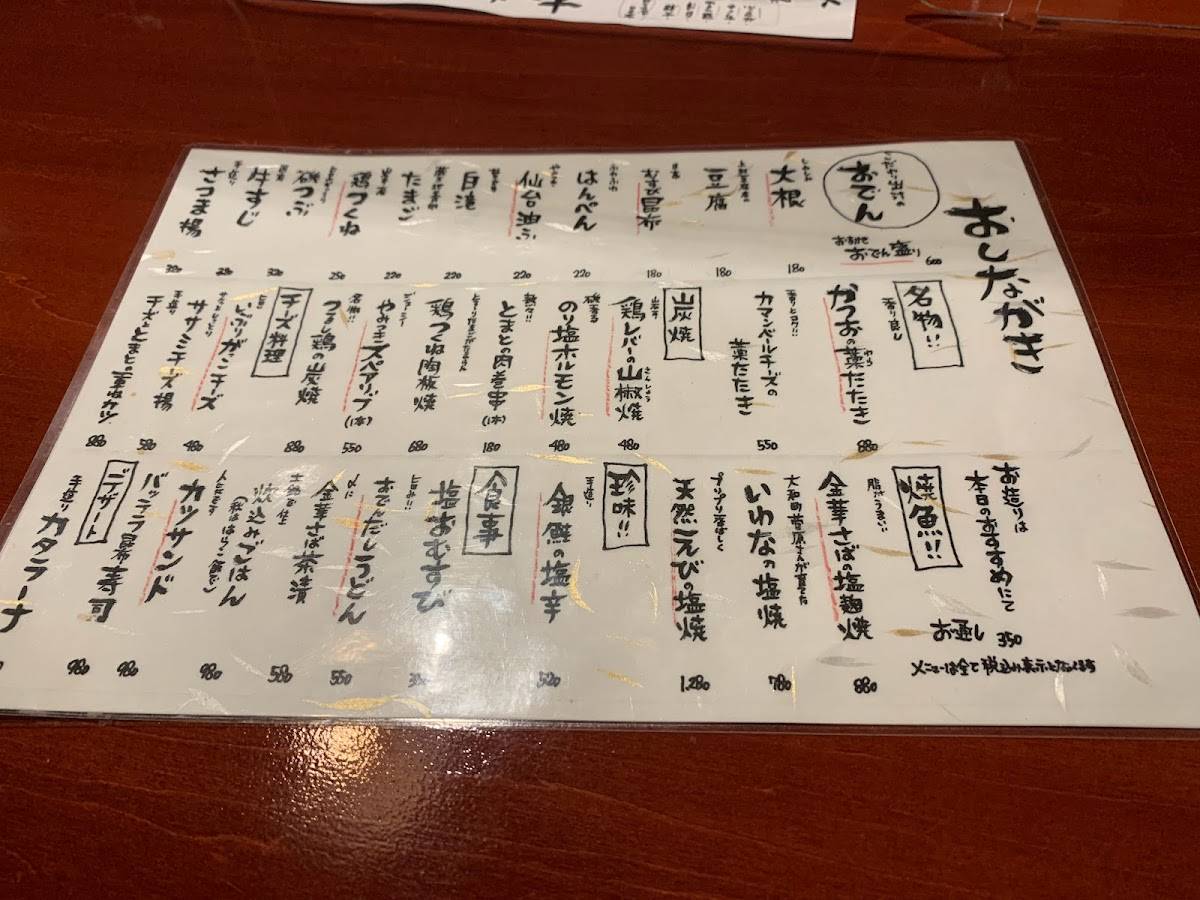 おしながき
おでん
おでん盛り 600
大根 180
豆腐 180
むすび昆布 180
ふわふわ
はんぺん 220
仙台油ふ 220
白滝 220
たまご 220
鶏つくね 250
磯つぶ 320
牛すじ
手造り
さつま揚
名物!!
香り良し
かつおの藁たたき 880
カマンベールチーズの
藁たたき 550
炭焼
鶏レバーの山椒焼 480
さんしょう
磯香る
のり塩ホルモン焼 480
熱々!!
とまとの肉巻串(1本) 180
鶏つくね陶板焼 680
ジューシー
やみつきスペアリブ(1本) 550
名物!!
つぶし鶏の炭焼 880
チーズ料理
いぶりがっこチーズ 480
ササミチーズ揚 580
手造り
チーズとまとの重ねカツ 880
お造りは
本日のおすすめにて
お通し 350
メニューは全て税込み表示となります
焼魚!!
脂がうまい!
金華さばの塩麹焼 880
大和町菅原さんが育てた
いわなの塩焼 780
プリプリ香ばしく
天然えびの塩焼 1.280
珍味!!
手造り
銀鮭の塩辛 520
食事
塩おむすび
〆に
おでんだしうどん 550
金華さば茶漬 580
土鍋で
炊込みごはん
(秋ははらこ飯で) 980
人気です
カツサンド 980
バッテラ昆寿司 980
デザート
手造り
カタラーナ